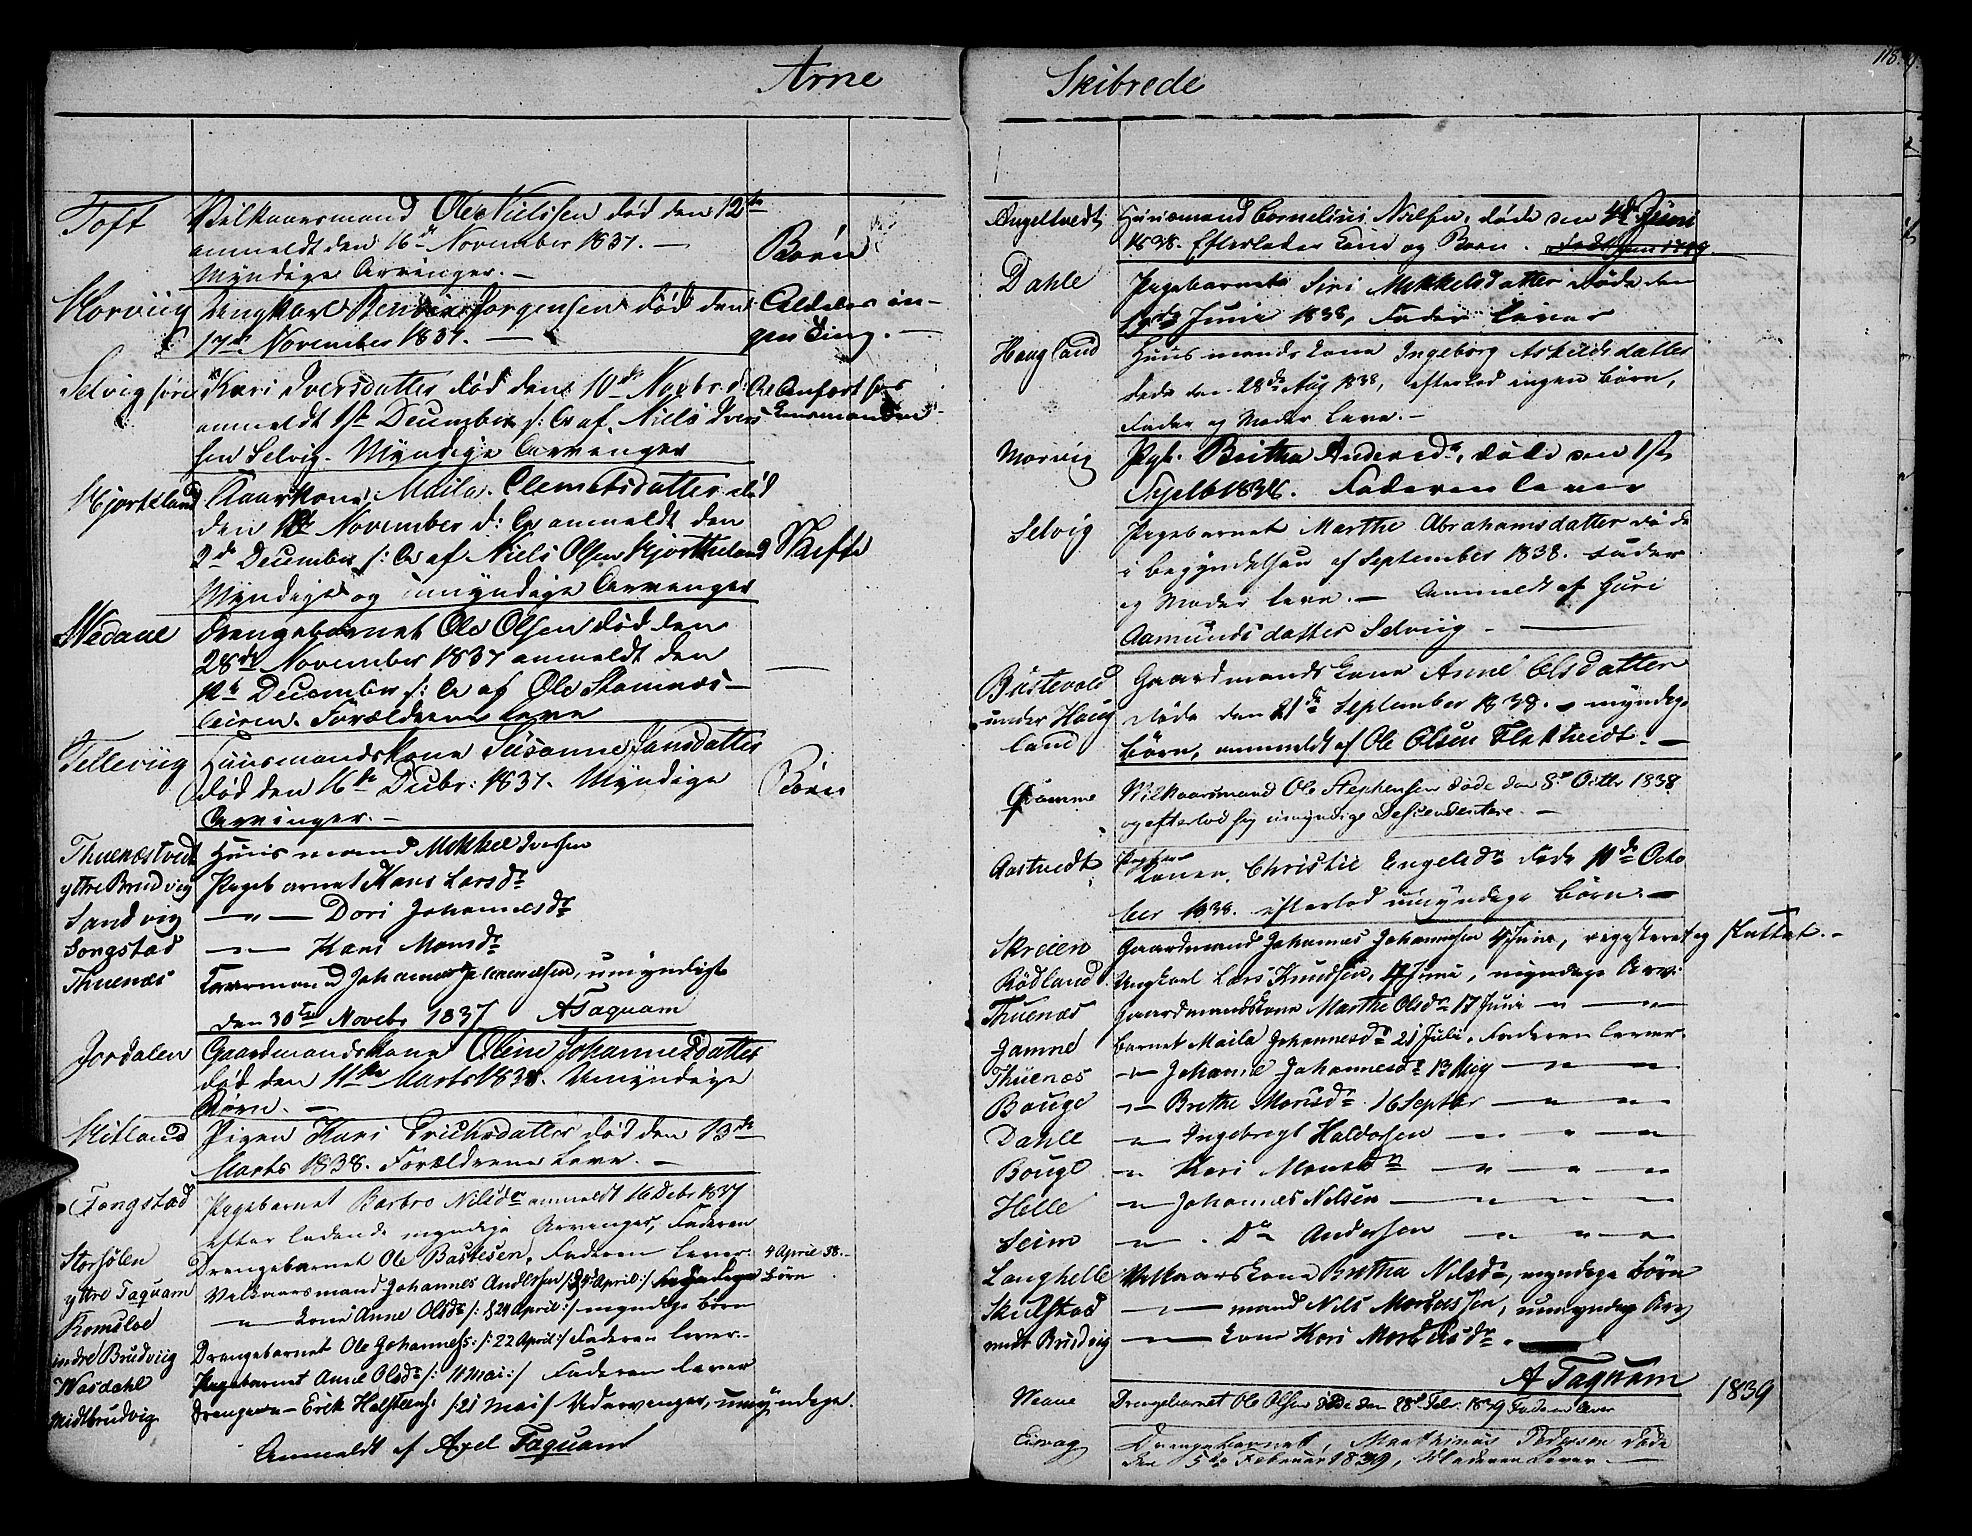 Arne
Toft
Vilkaarsmand Ole Nielssen død den 12te
anmeldt den 16de November 1837. —
Myndige Arvinger. —
Børn
Korviig
Ungkarl Jørgensen død den
17de November 1837. —
Selvig søre
Kari Iversdatter død den 10de Novbr d: A
anmeldt 1ste December s: A af Niels Ivers
sen Selvig. Myndige Arvenger
Anført hos
Lensmanden
Hjorteland
Kaarkone Maila Clemetsdatter død
den November d: A anmeldt den
2de December s: A af Niels Olsen Hjortheland
Myndige og umyndige Arvenger
Skifte
Wedaae
Drengebarnet Ole Olsen død den
28de November 1837 anmeldt den
December s: A af Ole Stamnes-
leiren. Forældrene leve
Tellevig
Huusmandskone Susanne Jansdatter
død den 16de Decbr: 1837. Myndige
Arvinger. —
Børn
Thuenæstvedt Huusmand Mikkel Iversen
yttre Brudvig Pigebarnet Hans Larsdr
Sandvig —"— Dori Johannesdr
Songstad —"— Kari Monsdr
Thuenæs Kaarmand Johannes, umyndige
den 30te Novebr 1837 A Taquam
Jordalen
Gaardmandskone Oline Johannesdatter
død den 11te Marts 1838. Umyndige
Børn. —
Pigen Kari Erichsdatter død den 13de
Marts 1838. Forældrene leve. —
Tongstad
Pigebarnet Barbro Nilsdr anmeldt 16 Debr 1837
efterladende myndige Arvenger, Faderen
Storsølen Drengebarnet Ole Bastesen, Faderen lever. 4 April 38.—
yttre Taquam Vilkaarsmand Johannes Andersen /: April :/ Børn
Romsloe —"— kone Anne Olsdr /: 24 April :/ myndige Børn
indre Brudviig Drengebarnet Ole Johanness: /: 22 April :/ Faderen lever.-
Wasdahl Pigebarnet Anne Olsdr /: 11 Mai :/ Faderen lever
Midtbrudvig Drenge —"— Erik Halsteens: /: 21 Mai :/ Udarvenger, umyndige.
Anmeldt af Axel Taquam
Skibrede
118.
Angeltvedt
Huusmand Cornelius Nielsen, døde den 4de Juni
1838. Efterlader Kone og Børn.
Dahle
Pigebarnet Siri Mikkelsdatter døde den
Juni 1838, Fader lever
Haugland
Huusmandskone Ingeborg Askildsdatter
døde den 28de Aug 1838, efterlod ingen Børn,
Fader og Moder leve. —
Morvig
Pgb. Britha Andersdr, døde den 1ste
Faderen lever
Selvig
Pigebarnet Marthe Abrahamsdatter døde
i Begyndelsen af September 1838. Fader
og Moder leve. — Anmeldt af Guri
Aamundsdatter Selviig. —
Bustevold
under Haug
land
Gaardmandskone Anne Olsdatter
døde den 21de September 1838. — myndige
Børn, anmeldt af Ole Olsen Flatqvedt. —
Qvamme
Vilkaarsmand Ole Stephensen døde den 8de Octbr 1838
og efterlod sig umyndige Descendenter. —
Aastvedt
Konen Christie Engelsdr døde 11de Octo
ber 1838. efterlod umyndige Børn. —
Skreien Gaardmand Johannes Johannesen 4 Juni, registeret og sluttet. —
Rødland Ungkarl Lars Knudsen, 4 Juni, myndige Arv:
Thuenæs Gaardmandskone Marthe Olsdr 17 Juni —"— —"—
Jamne Barnet Maila Johannesdr 21 Juli, Faderen lever.
Thuenæs —"— Johanne Johannesdr 13 Aug —"— —"—
Bouge —"— Brethe Monsdr 16 Septbr —"— " —"—
Dahle —"— Ingebregt Haldorsen —"— " —"—
Bouge —"— Kari Monsdr —"— " —"—
Helle —"— Johannes Nelsen —"— " —"—
Seim —"— Do Andersen —"— " —"—
Langhelle Vilkaarskone Britha Nilsdr, myndige Børn
Skulstad —"— mand Nils Monssen, umyndige Arv
midt Brudvig —"— kone Kari dr.
A Taquam
Weaae Drengebarnet Ole Olsen døde den 28de Febr. 1839 Faderen lever 1839
Eisvag Drengebarnet, Marthinus Pedersen døde
den 5te Februar 1839, Moderen lever. —